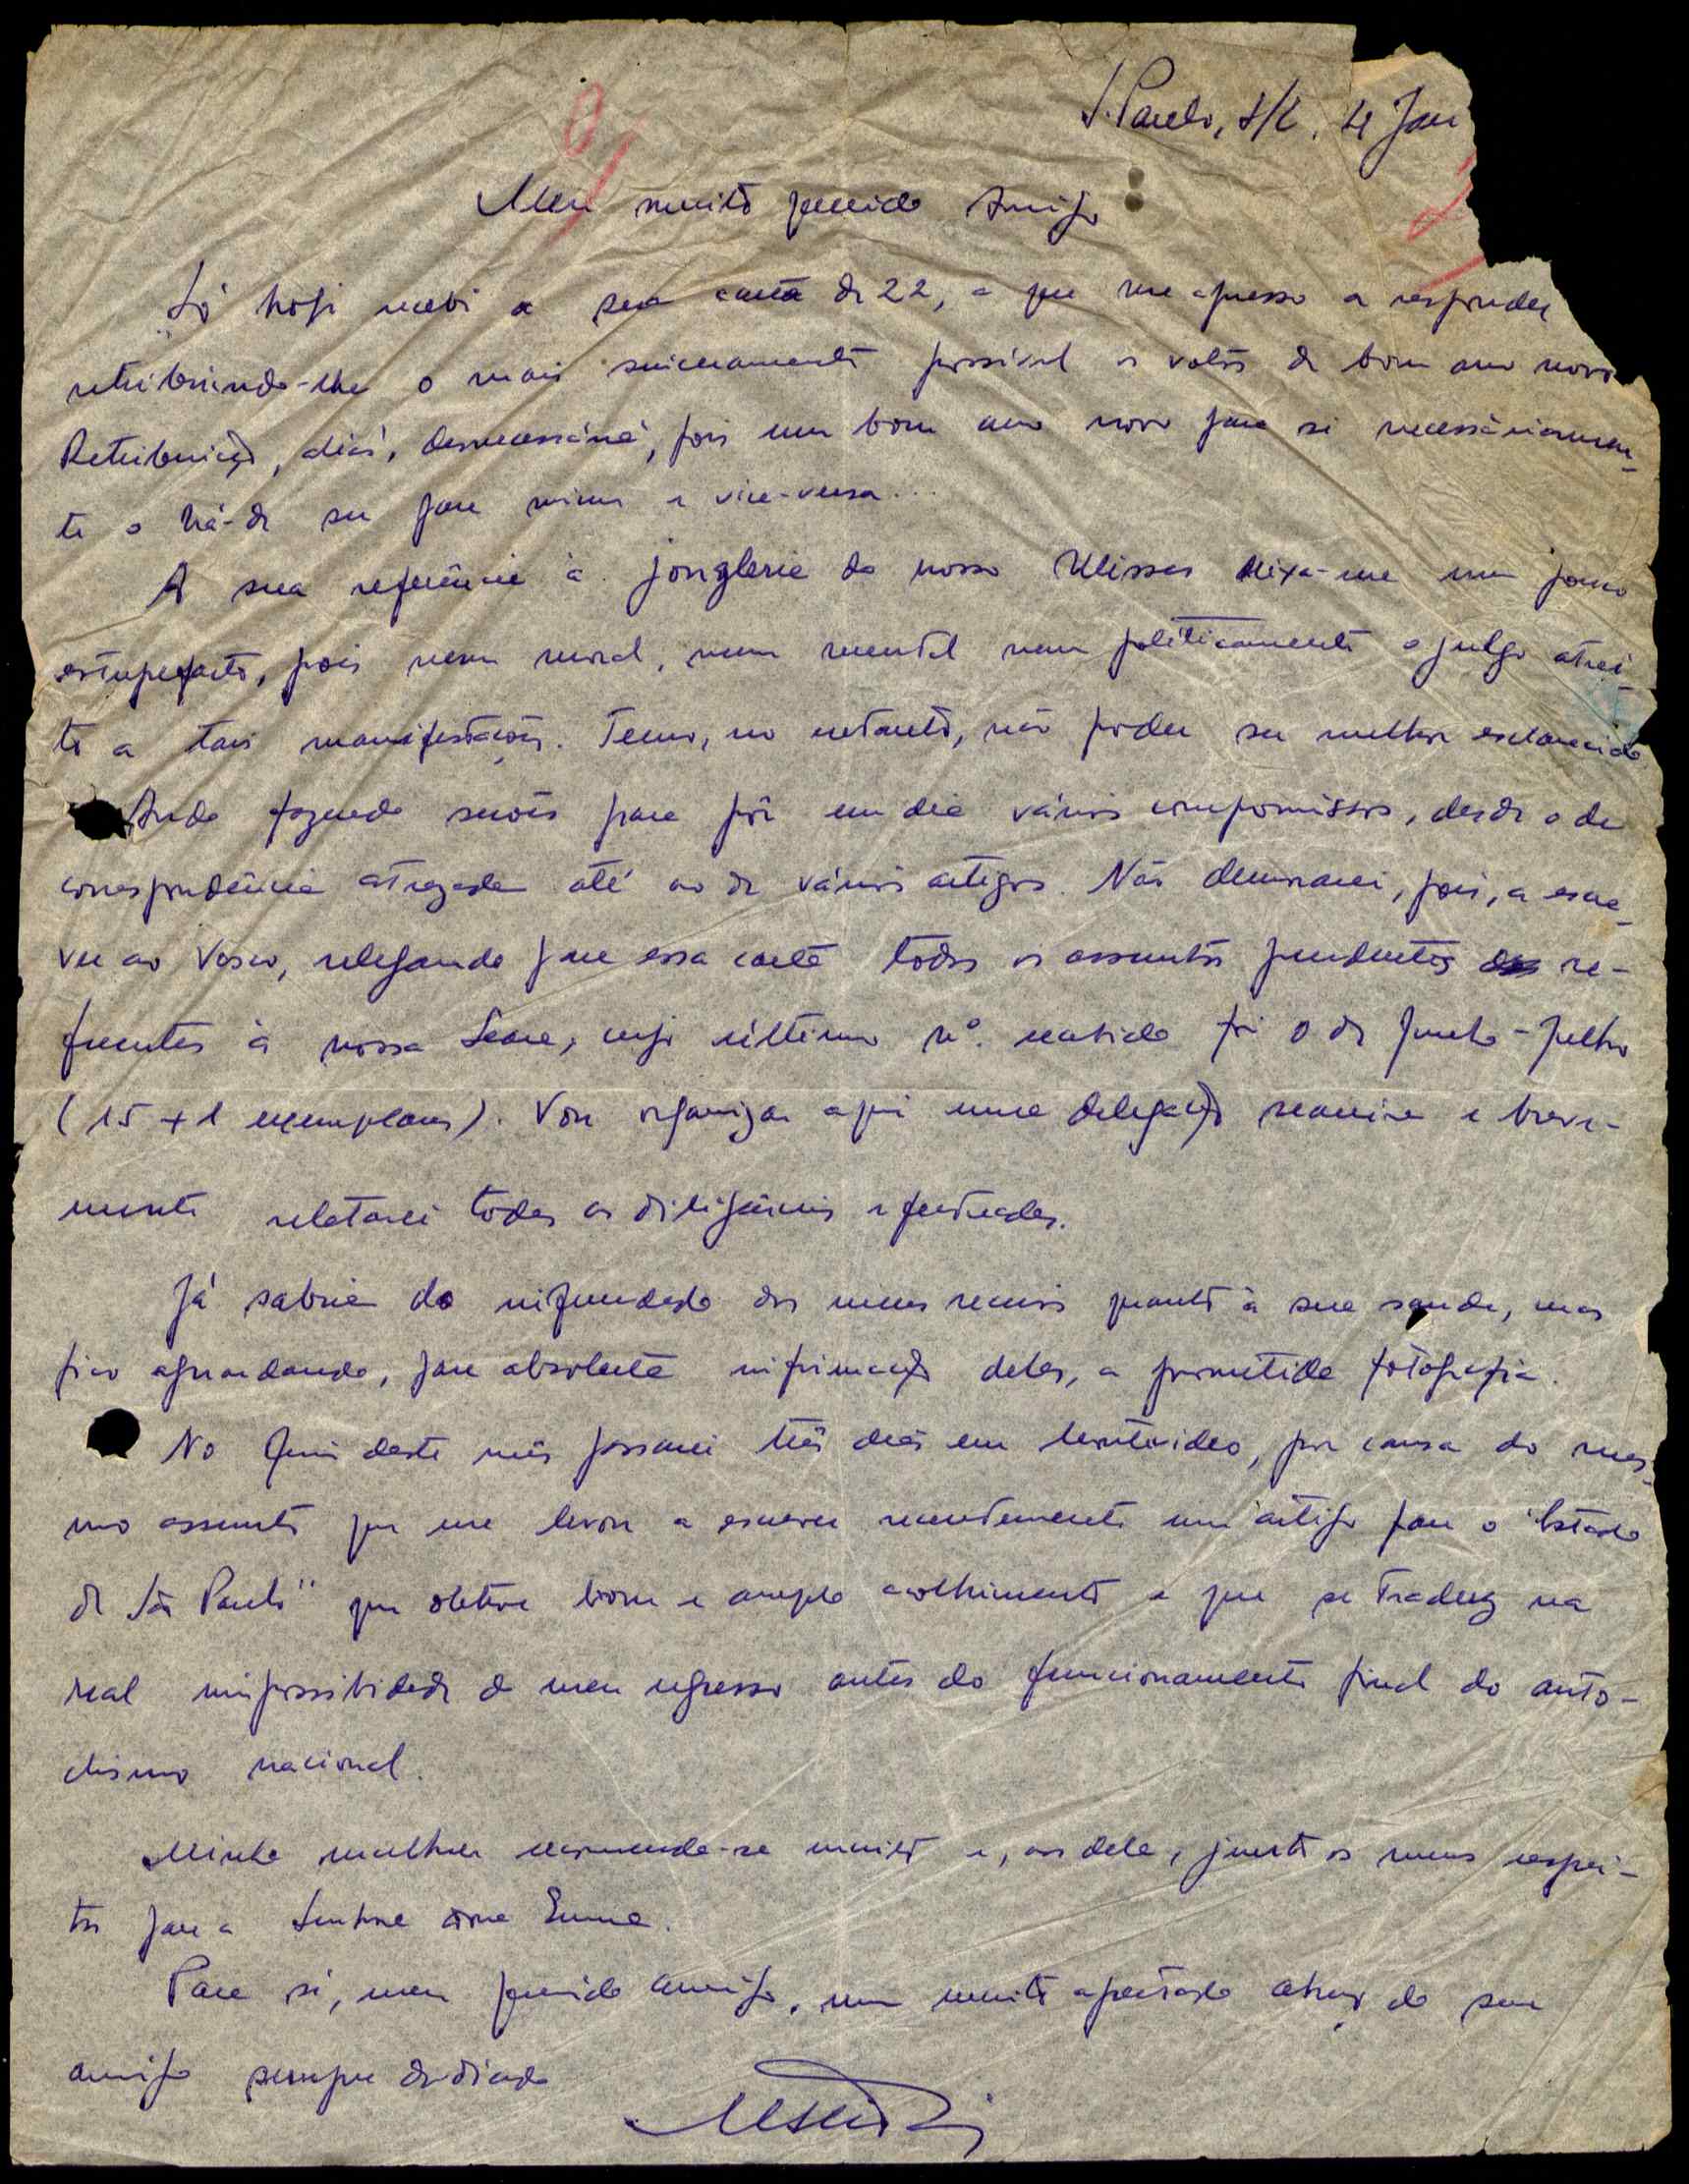 S. Paulo, s/c, 4 Jan
Meu muito querido Amigo
Só hoje recebi a sua carta de 22, a que me apresso a responder
retribuindo-lhe o mais sinceramente possível os votos de bom ano novo.
Retribuição, aliás, desnecessária, pois um bom ano novo para si necessàriamen-
te o há-de ser para mim e vice-versa...
A sua referência à jonglerie do nosso Ulisses deixa-me um pouco
estupefacto, pois nem moral, nem mental nem politicamente o julgo atrei-
to a tais manifestações. Temo, no entanto, não poder ser melhor esclarecido.
Ando fazendo serões para pôr em dia vários compromissos, desde o da
correspondência atrazada até ao de vários artigos. Não demorarei, pois, a escre-
ver ao Vasco, relegando para essa carta todos os assuntos pendentes re-
ferentes à nossa Seara, cujo último nº. recebido foi o de Junho-Julho
(15 + 1 exemplares). Vou organizar aqui uma delegação seareira e breve-
mente relatarei todas as diligências efectuadas.
Já sabia do infundado dos meus receios quanto à sua saude, mas
fico aguardando, para absoluta deles, a prometida fotografia.
No fim deste mês passarei três dias em Montevideo, por causa do mes-
mo assunto que me levou a escrever recentemente um artigo para o "Estado
de São Paulo" que obteve bom e amplo acolhimento e que se traduz na
real impossibilidade do meu regresso antes do funcionamento final do auto-
clismo nacional.
Minha mulher recomenda-se muito e, aos dela, junto os meus respei-
tos para a Senhora Dona Emma.
Para si, meu querido amigo, um muito apertado abraço do seu
amigo sempre dedicado